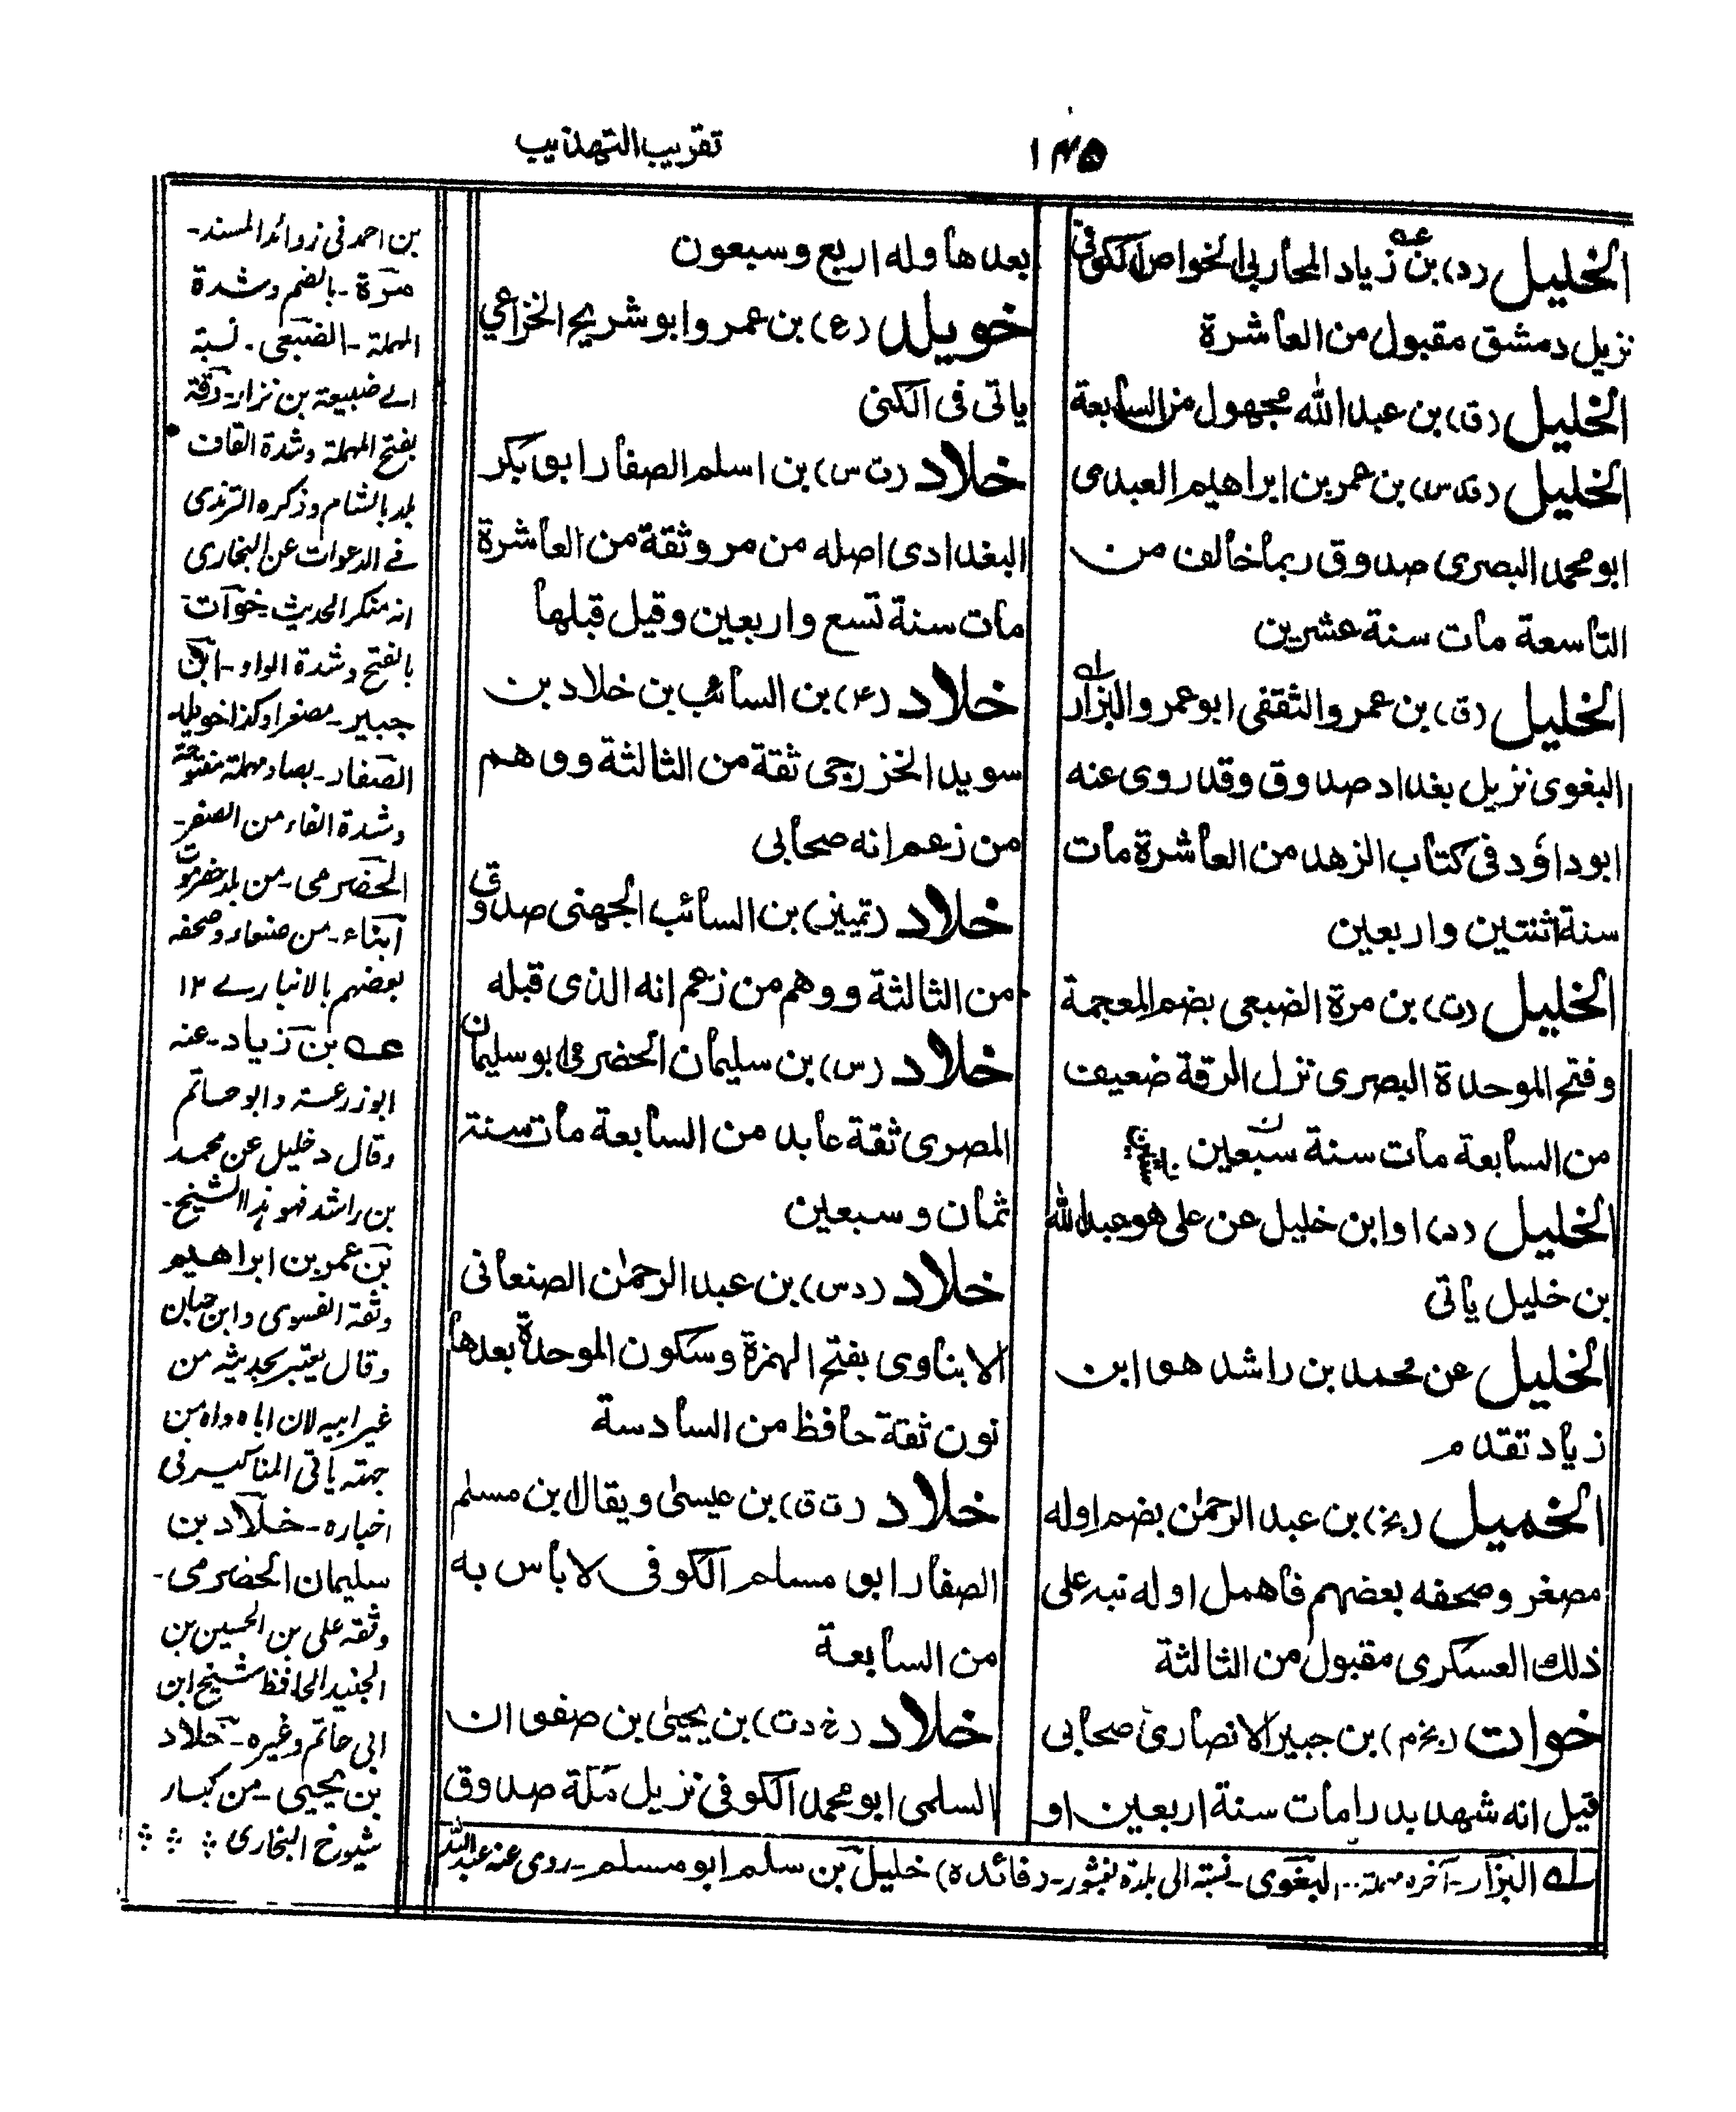 تقريب التهذيب
١٣٥
الخليل (د) بن زياد المحاربي الخواص الكوفي
نزيل دمشق مقبول من العاشرة
الخليل (ق) بن عبد الله مجهول من السابعة
الخليل (قد س) بن عمر بن ابراهيم العبدي
ابو محمد البصري صدوق ربما خالف من
التاسعة مات سنة عشرين
الخليل (ق) بن عمرو الثقفي ابو عمرو البزار
البغوى نزيل بغداد صدوق وقد روى عنه
ابو داؤد فى كتاب الزهد من العاشرة مات
سنة اثنتين واربعين
الخليل (ت) بن مرة الضبعى بضم المعجمة
وفتح الموحدة البصرى نزل الرقة ضعيف
من السابعة مات سنة سبعين
الخليل (د) او ابن خليل عن على هو عبد الله
بن خليل ياتى
الخليل عن محمد بن راشد هو ابن
زياد تقدم
الخميل (بخ) بن عبد الرحمٰن بضم اوله
مصغر وصحفه بعضهم فاهمل اوله نبه على
ذلك العسكرى مقبول من الثالثة
خوات (بخ م) بن جبير الانصارى صحابى
قيل انه شهد بدرا مات سنة اربعين او
بعدها وله اربع وسبعون
خويلد (ع) بن عمرو ابو شريح الخزاعي
ياتى فى الكنى
خلاد (ت س) بن اسلم الصفار ابو بكر
البغدادى اصله من مرو ثقة من العاشرة
مات سنة تسع واربعين وقيل قبلها
خلاد (٤) بن السائب بن خلاد بن
سويد الخزرجى ثقة من الثالثة ووهم
من زعم انه صحابى
خلاد (تمييز) بن السائب الجهنى صدوق
من الثالثة ووهم من زعم انه الذى قبله
خلاد (س) بن سليمان الحضرمى ابو سليمان
المصرى ثقة عابد من السابعة مات سنة
ثمان وسبعين
خلاد (د س) بن عبد الرحمٰن الصنعانى
الابناوى بفتح الهمزة وسكون الموحدة بعدها
نون ثقة حافظ من السادسة
خلاد (ت ق) بن عيسىٰ ويقال ابن مسلم
الصفار ابو مسلم الكوفى لا بأس به
من السابعة
خلاد (خ د ت) بن يحيىٰ بن صفوان
السلمى ابو محمد الكوفى نزيل مكة صدوق
له البزار - آخره مهملة .. البغوى - نسبة الى بلدة بغشور - (فائدة) خليل بن سلم ابو مسلم - روى عنه عبد الله
بن احمد فى زوائد المسند -
مرة - بالضم وشدة
المهملة - الضبعى - نسبة
الے ضبيعة بن نزار - رقة
بفتح المهملة وشدة القاف
بلد بالشام وذكره الترمذى
فے الدعوات عن البخارى
انه منكر الحديث - خوات
بالفتح وشدة الواو - ابن
جبير - مصغرا وكذا خويلد
الصفار - بصاد مهملة مفتوحة
وشدة الفاء من الصفر -
الحضرمى - من بلد حضرموت
ابناء - من صنعاء وصحفه
بعضهم بالانبارے ١٢
عه بن زياد - عنه
ابو زرعة وابو حاتم
وقال د خليل عن محمد
بن راشد فهو هذا الشيخ -
بن عمر بن ابراهيم
وثقه الفسوى وابن حبان
وقال يعتبر بحديثه من
غير ابيه لان اباه واه من
جهته ياتى المناكير فى
اخباره - خلاد بن
سليمان الحضرمى -
وثقه على بن الحسين بن
الجنيد الحافظ شيخ ابن
ابى حاتم وغيره - خلاد
بن يحيى - من كبار
شيوخ البخارى